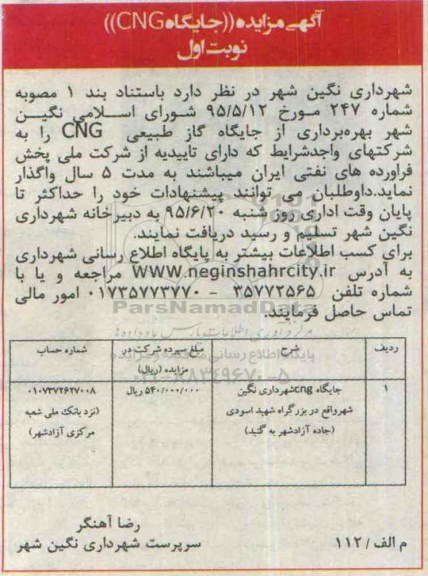 آگهی مزایده ((جایگاه CNG))
نوبت اول
شهرداری نگین شهر در نظر دارد باستناد بند ۱ مصوبه
شماره ۲۴۷ مورخ ۹۵/۵/۱۲ شورای اسلامی نگین
شهر بهره‌برداری از جایگاه گاز طبیعی CNG را به
شرکتهای واجدشرایط که دارای تاییدیه از شرکت ملی پخش
فراورده های نفتی ایران میباشند به مدت ۵ سال واگذار
نماید.داوطلبان می توانند پیشنهادات خود را حداکثر تا
پایان وقت اداری روز شنبه ۹۵/۶/۲۰ به دبیرخانه شهرداری
نگین شهر تسلیم و رسید دریافت نمایند.
برای کسب اطلاعات بیشتر به پایگاه اطلاع رسانی شهرداری
به آدرس www.neginshahrcity.ir مراجعه و یا با
شماره تلفن ۳۵۷۷۲۵۶۵ - ۰۱۷۳۵۷۷۳۷۷۰ امور مالی
تماس حاصل فرمایند.
ParsNamadData
ردیف شرح مبلغ سپرده شرکت در مزایده (ریال) شماره حساب
۱ جایگاه cng شهرداری نگین ۵۴۰/۰۰۰/۰۰۰ ریال ۰۱۰۷۳۷۲۶۲۷۰۰۸
شهرواقع در بزرگراه شهید اسودی (نزد بانک ملی شعبه
(جاده آزادشهر به گنبد) مرکزی آزادشهر)
رضا آهنگر
م الف / ۱۱۲ سرپرست شهرداری نگین شهر